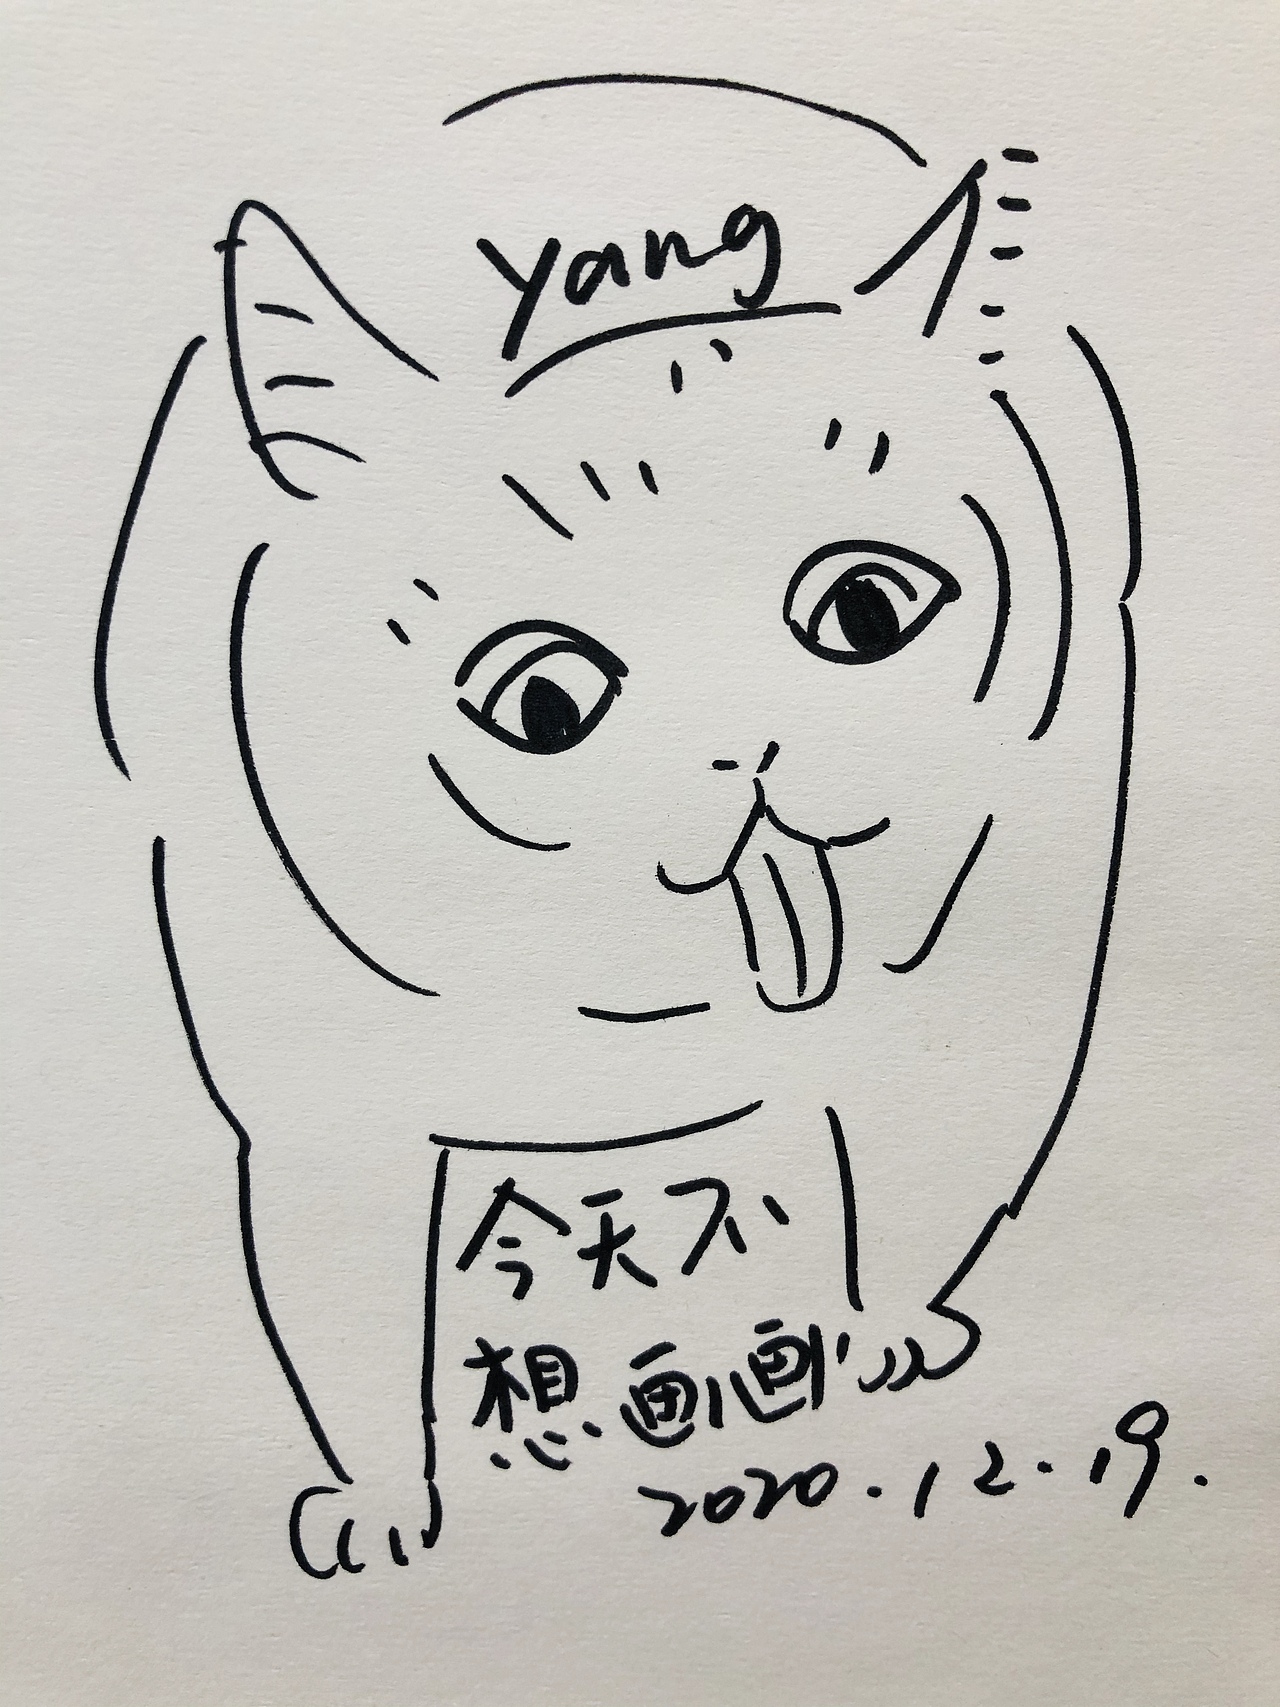 yang
今天不
想画画
2020.12.19.